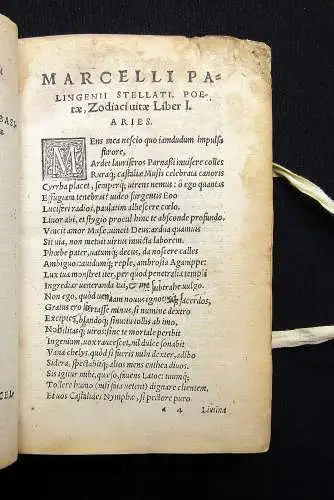 MARCELLI PA-
LINGENII STELLATI, POE-
tæ, Zodiaci uitæ Liber I.
ARIES.
MEns mea nescio quo iamdudum impulsa
furore,
Ardet lauriferos Parnasi inuisere colles
Ruraq; castaliæ Musis celebrata canoris
Cyrrha placet, semperq; uirens nemus: ô ego quantas
Effugiam tenebras! uideo surgentis Eoo
Luciferi radios, paulatim albescere cœlo.
Liuor abi, et stygio procul hinc te absconde profundo.
Vincit amor Musæ, uincit Deus: ardua quamuis
Sit uia, non metuit uirtus inuicta laborem.
Phœbe pater, uatumq; decus, da noscere calles
Ambiguo: uatumq; reple, ambrosio Aganippe:
Lux tua monstret iter, per quod penetralia templi
Ingrediar ueneranda tui, uulgo.
Non ego, quòd sacerdos,
Gratus ero minus, si numine dextro
Excipies, blandoq; tollis ab imo,
Nobilitasq; uiros: sine te mortale peribit
Ingenium, uox raucescet, nil dulce sonabit
Vana chelys, quòd si fueris mihi dexter, adibo
Sidera, spectabitq; alios mens enthea diuos.
Sis igitur mihi, quæso, præsens
Tollere humo dignare clientem,
Et uos Castalides Nymphæ, si pectore puro
a 4
BASI
CEM